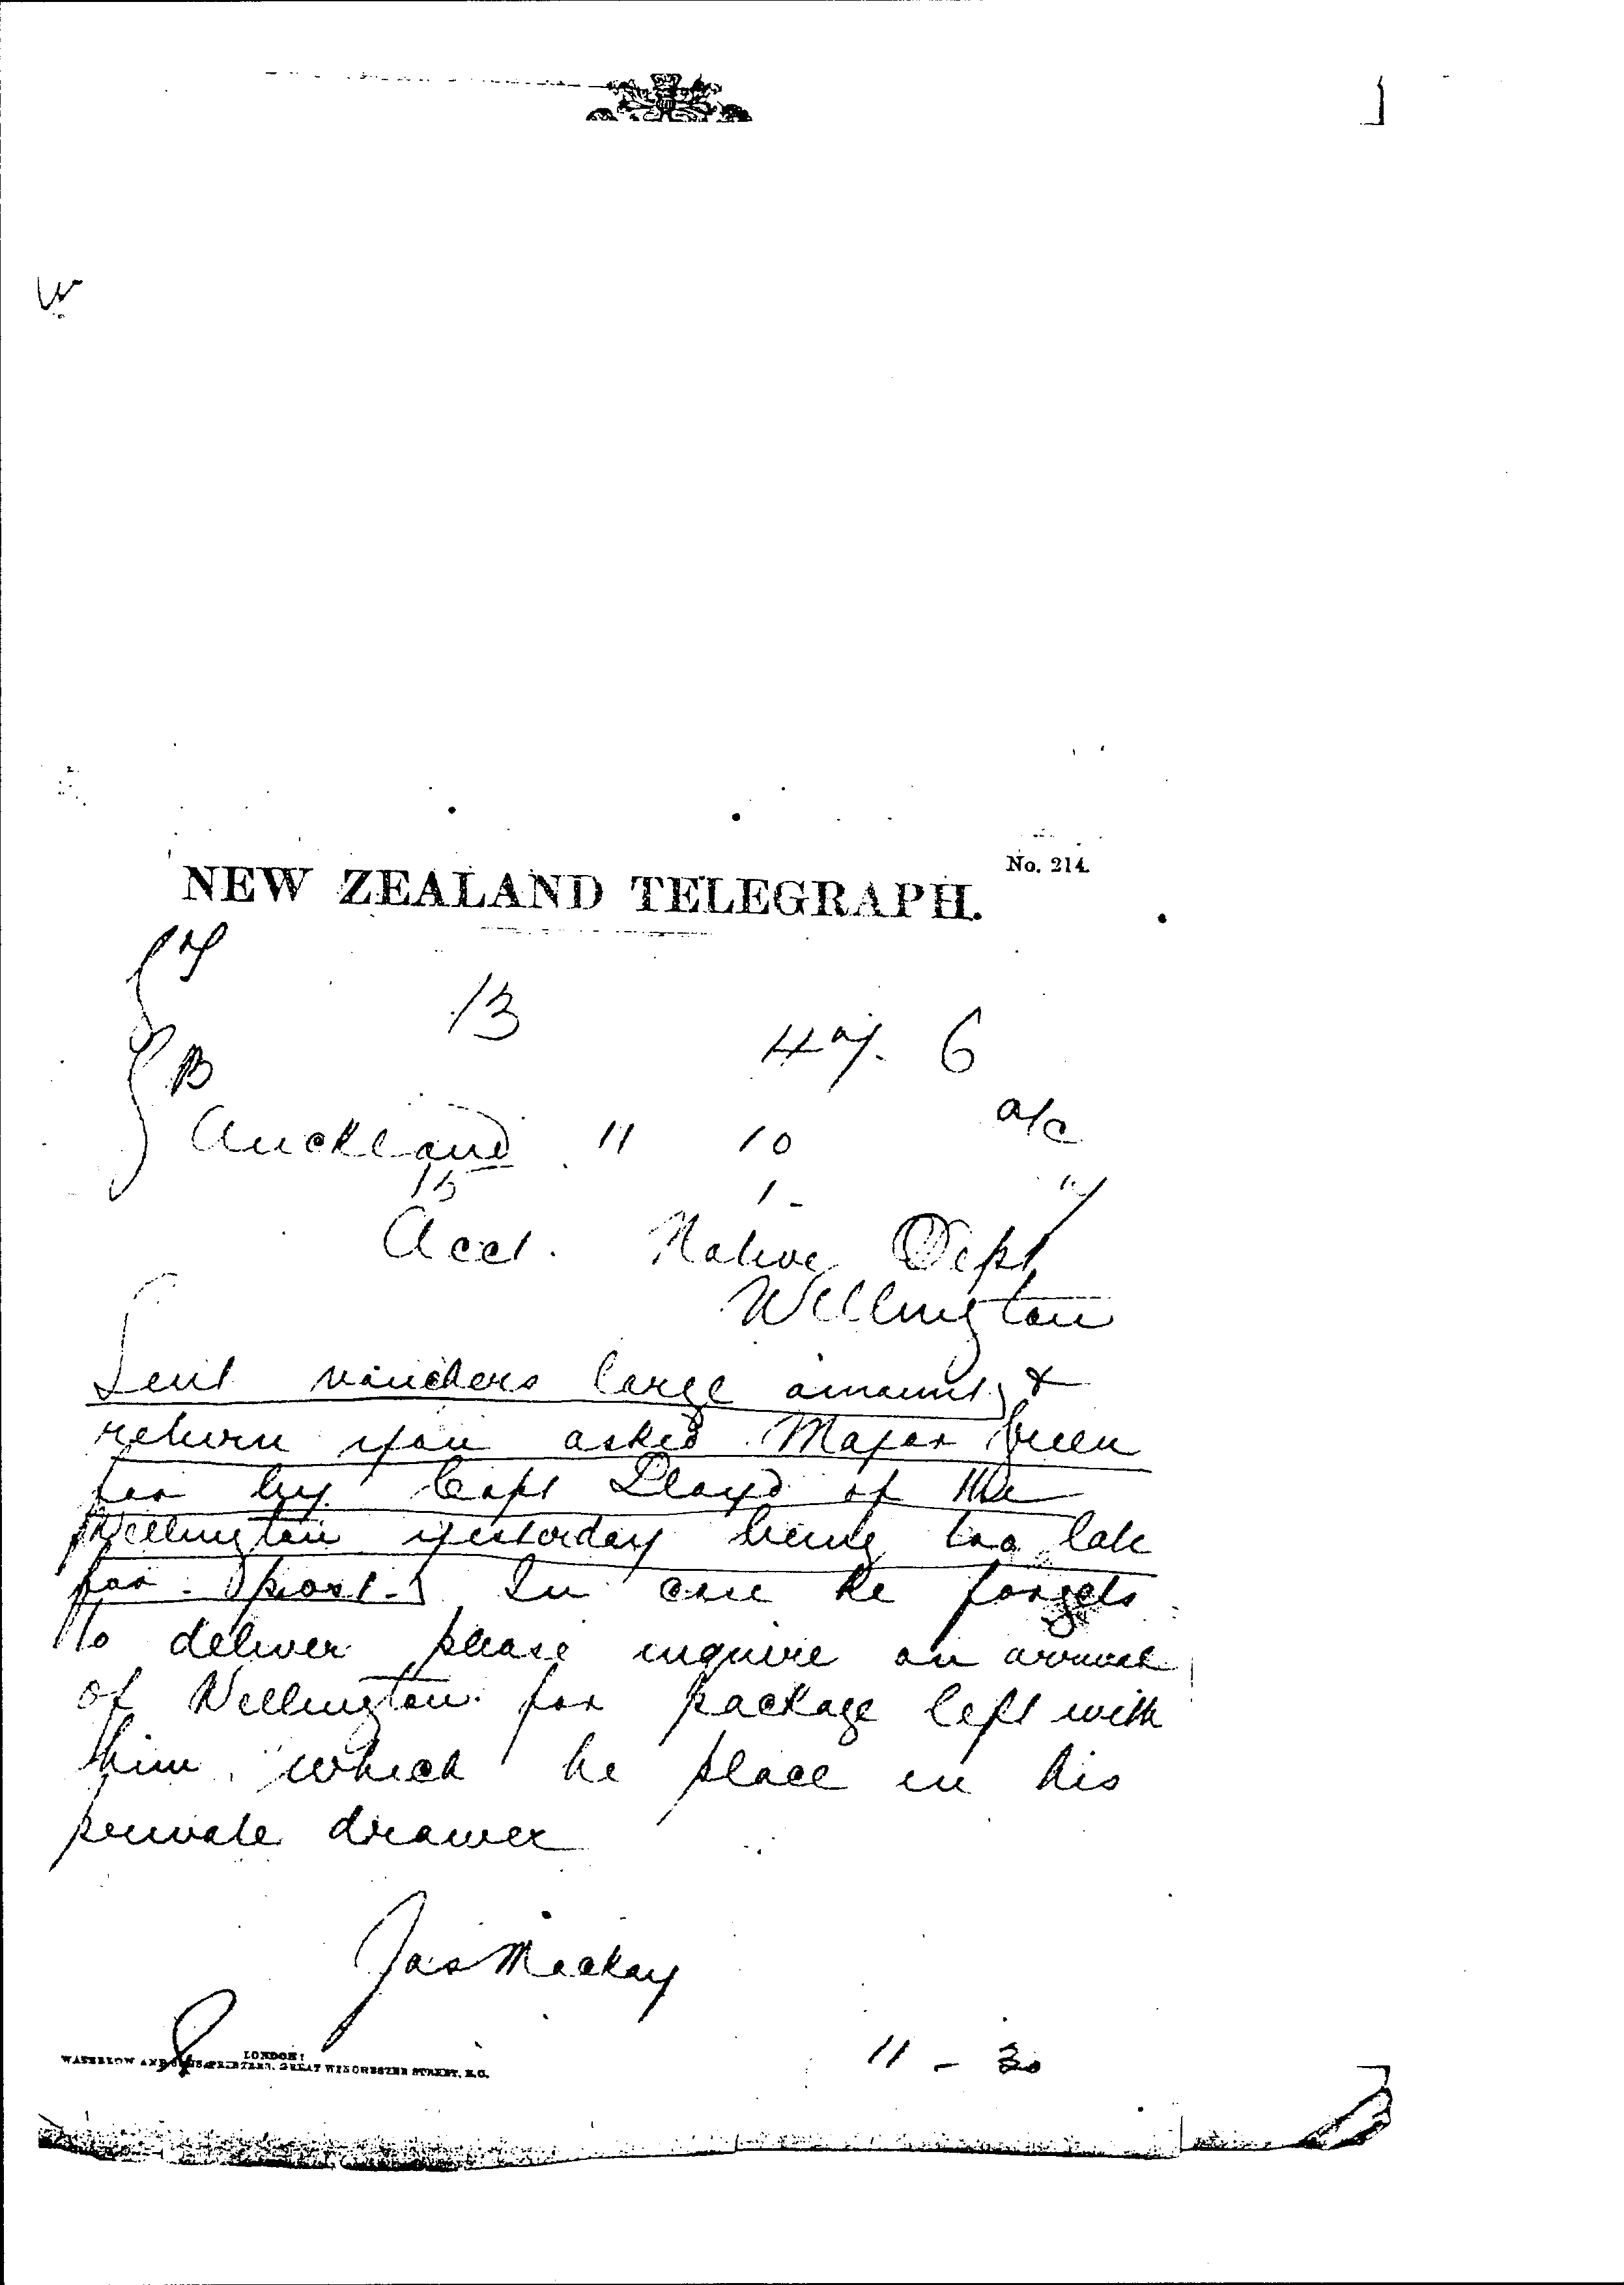 W
No. 214.
NEW ZEALAND TELEGRAPH.
13
6
B
Auckland " 10 a/c
15 1 -
Acct. Native Dept
Wellington
Sent vouchers large amount &
return you asked Major Green
for by Capt Lloyd of the
Wellington yesterday being too late
for post. In case he forgets
to deliver please inquire on arrival
of Wellington for package left with
him which he place in his
private drawer
Jas Mackay
11 - 30
LONDON:
WATERLOW AND SONS, PRINTERS, GREAT WINCHESTER STREET, E.C.